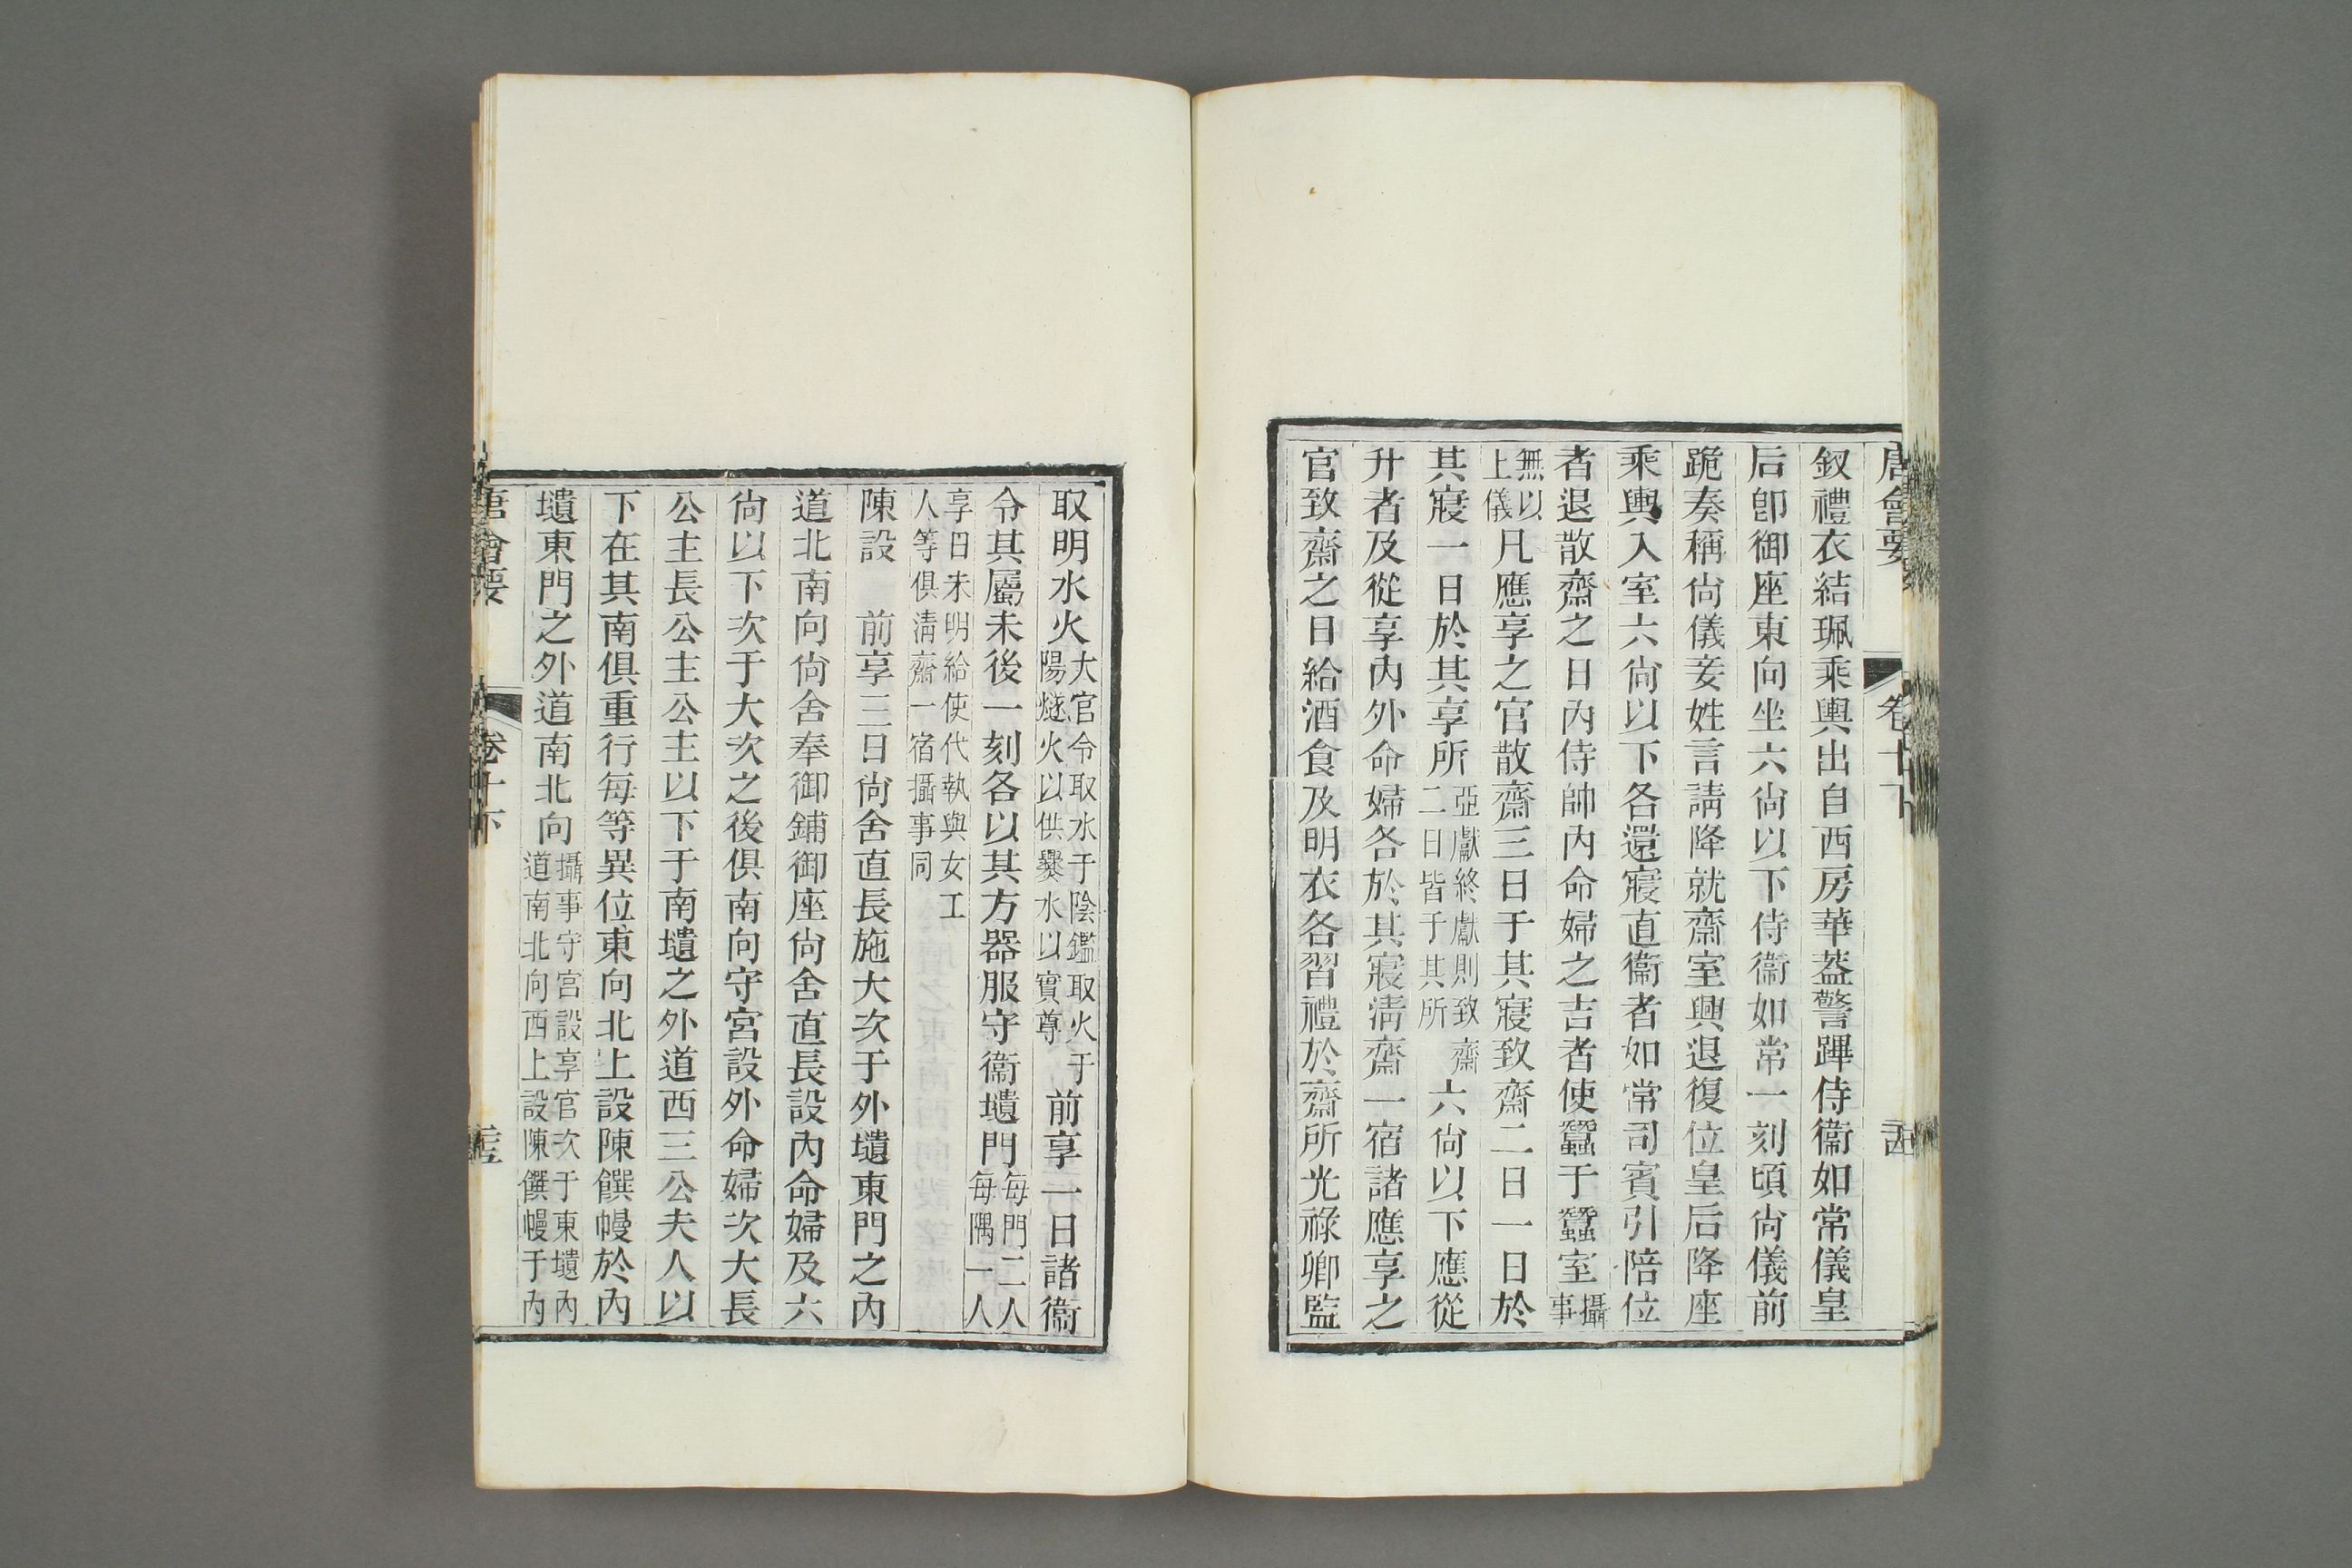 唐會要 卷十下
釵禮衣結珮乘輿出自西房華葢警蹕侍衞如常儀皇
后卽御座東向坐六尙以下侍衞如常一刻頃尙儀前
跪奏稱尙儀妾姓言請降就齋室興退復位皇后降座
乘輿入室六尙以下各還寢直衞者如常司賓引陪位
者退散齋之日內侍帥內命婦之吉者使蠶于蠶室攝事
無以上儀凡應享之官散齋三日于其寢致齋二日一日於
其寢一日於其享所亞獻終獻則致齋二日皆于其所六尙以下應從
升者及從享內外命婦各於其寢淸齋一宿諸應享之
官致齋之日給酒食及明衣各習禮於齋所光祿卿監
取明水火大官令取水于陰鑑取火于陽燧火以供爨水以實尊前享一日諸衞
令其屬未後一刻各以其方器服守衞壝門每門二人每隅一人
享日未明給使代執與女工人等俱淸齋一宿攝事同
陳設 前享三日尙舍直長施大次于外壝東門之內
道北南向尙舍奉御鋪御座尙舍直長設內命婦及六
尙以下次于大次之後俱南向守宮設外命婦次大長
公主長公主公主以下于南壝之外道西三公夫人以
下在其南俱重行每等異位東向北上設陳饌幔於內
壝東門之外道南北向攝事守宮設享官次于東壝內道南北向西上設陳饌幔于內
唐會要 卷十下